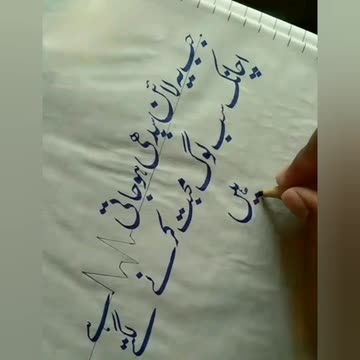 جب یہ لائن سیدھی ہوجاتی ہے
اچانک سب لوگ محبت کرنے لگتے
ہیں